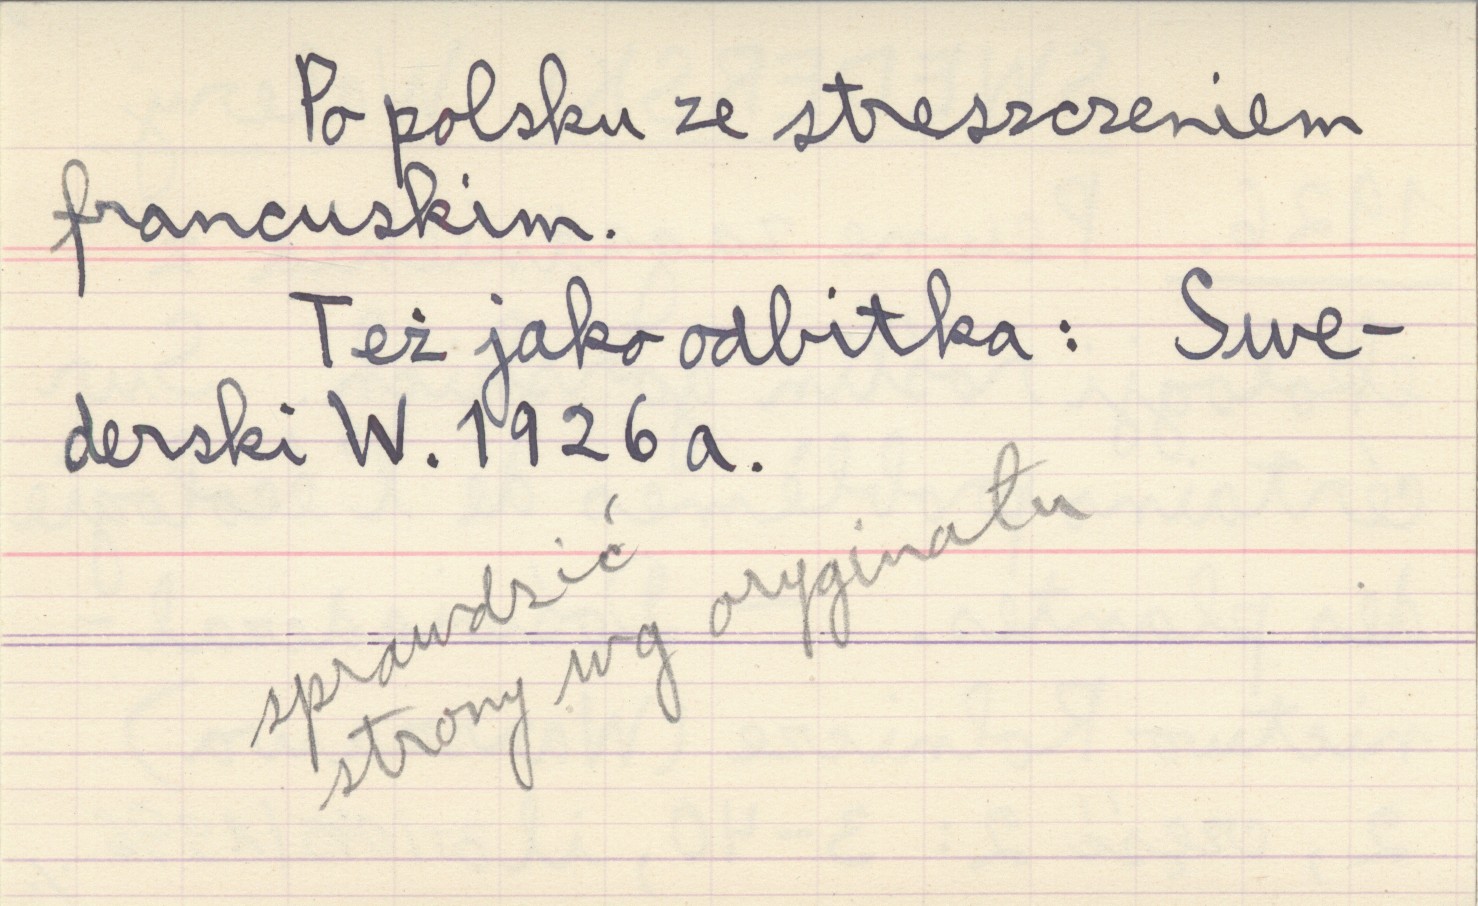 Po polsku ze streszczeniem
francuskim.
Też jako odbitka: Swe-
derski W. 1926 a.
sprawdzić
strony wg oryginału